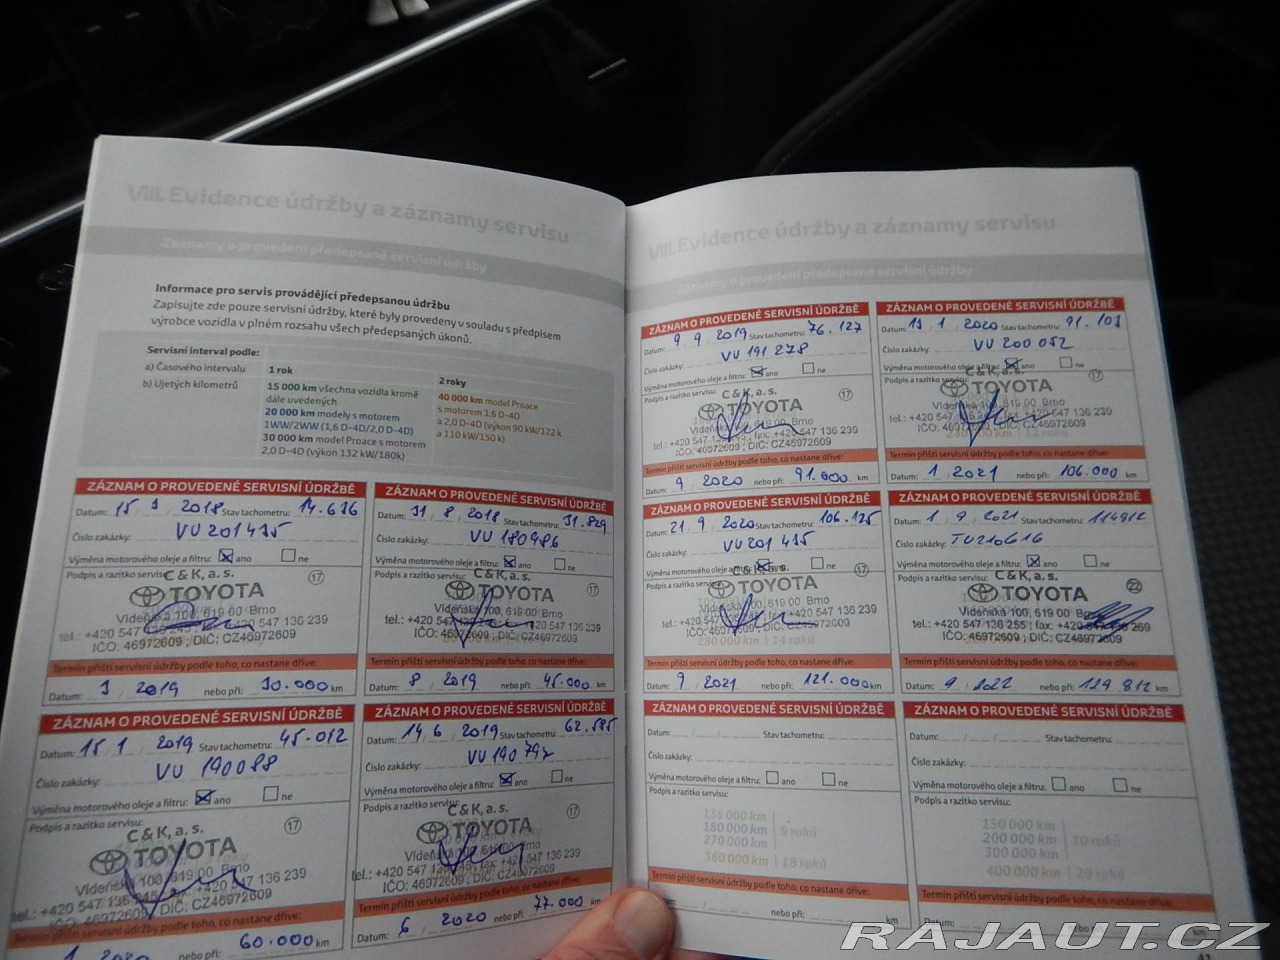 VIII. Evidence údržby a záznamy servisu
Záznamy o provedení předepsané servisní údržby
Informace pro servis provádějící předepsanou údržbu
Zapisujte zde pouze servisní údržbu, které byly provedeny v souladu s předpisem
výrobce vozidla v plném rozsahu všech předepsaných úkonů.
Servisní interval podle:
a) Časového intervalu
b) Ujetých kilometrů
1 rok
15 000 km všechna vozidla kromě
dále uvedených
20 000 km modely s motorem
1WW/2WW (1,6 D-4D/2,0 D-4D)
30 000 km model Proace s motorem
2,0 D-4D (výkon 132 kW/180k)
2 roky
40 000 km model Proace
s motorem 1,6 D-4D
a 2,0 D-4D (výkon 90 kW/122 k
a 110 kW/150 k)
ZÁZNAM O PROVEDENÉ SERVISNÍ ÚDRŽBĚ
Datum: 15 3 2018 Stav tachometru: 14.636
Číslo zakázky: VU201435
Výměna motorového oleje a filtru: ano ne
Podpis a razítko servisu:
C & K, a. s. 17
TOYOTA
Vídeňská 100, 619 00 Brno
tel.: +420 547 136 239
IČO: 46972609 ; DIČ: CZ46972609
Termín příští servisní údržby podle toho, co nastane dříve:
Datum: 3 2019 nebo při: 30.000 km
ZÁZNAM O PROVEDENÉ SERVISNÍ ÚDRŽBĚ
Datum: 31 8 2018 Stav tachometru: 31.829
Číslo zakázky: VU 180986
Výměna motorového oleje a filtru: ano ne
Podpis a razítko servisu:
C & K, a. s. 17
TOYOTA
Vídeňská 100, 619 00 Brno
tel.: +420 547 136 239
IČO: 46972609 ; DIČ: CZ46972609
Termín příští servisní údržby podle toho, co nastane dříve:
Datum: 8 2019 nebo při: 45.000 km
ZÁZNAM O PROVEDENÉ SERVISNÍ ÚDRŽBĚ
Datum: 15 1 2019 Stav tachometru: 45.012
Číslo zakázky: VU 190088
Výměna motorového oleje a filtru: ano ne
Podpis a razítko servisu:
C & K, a. s. 17
TOYOTA
Vídeňská 100, 619 00 Brno
tel.: +420 547 136 239
IČO: 46972609 ; DIČ: CZ46972609
Termín příští servisní údržby podle toho, co nastane dříve:
1 2020 nebo při: 60.000 km
ZÁZNAM O PROVEDENÉ SERVISNÍ ÚDRŽBĚ
Datum: 14 6 2019 Stav tachometru: 62.585
Číslo zakázky: VU 190797
Výměna motorového oleje a filtru: ano ne
Podpis a razítko servisu:
C & K, a. s. 17
TOYOTA
Vídeňská 100, 619 00 Brno
tel.: +420 547 136 239
IČO: 46972609 ; DIČ: CZ46972609
Termín příští servisní údržby podle toho, co nastane dříve:
Datum: 6 2020 nebo při: 77.000 km
VIII. Evidence údržby a záznamy servisu
Záznamy o provedení předepsané servisní údržby
ZÁZNAM O PROVEDENÉ SERVISNÍ ÚDRŽBĚ
Datum: 9 9 2019 Stav tachometru: 76.127
Číslo zakázky: VU 191 278
Výměna motorového oleje a filtru: ano ne
Podpis a razítko servisu:
C & K, a. s. 17
TOYOTA
Vídeňská 100, 619 00 Brno
tel.: +420 547 136 239
IČO: 46972609 ; DIČ: CZ46972609
Termín příští servisní údržby podle toho, co nastane dříve:
9 2020 nebo při: 91.000 km
ZÁZNAM O PROVEDENÉ SERVISNÍ ÚDRŽBĚ
Datum: 13 1 2020 Stav tachometru: 91.103
Číslo zakázky: VU 200 052
Výměna motorového oleje a filtru: ano ne
Podpis a razítko servisu:
C & K, a. s. 17
TOYOTA
Vídeňská 100, 619 00 Brno
tel.: +420 547 136 239
IČO: 46972609 ; DIČ: CZ46972609
Termín příští servisní údržby podle toho, co nastane dříve:
Datum: 1 2021 nebo při: 106.000 km
ZÁZNAM O PROVEDENÉ SERVISNÍ ÚDRŽBĚ
Datum: 21 9 2020 Stav tachometru: 106.125
Číslo zakázky: VU201 435
Výměna motorového oleje a filtru: ano ne
Podpis a razítko servisu:
C & K, a. s. 17
TOYOTA
Vídeňská 100, 619 00 Brno
tel.: +420 547 136 239
IČO: 46972609 ; DIČ: CZ46972609
280 000 km 14 roků
Termín příští servisní údržby podle toho, co nastane dříve:
Datum: 9 2021 nebo při: 121.000 km
ZÁZNAM O PROVEDENÉ SERVISNÍ ÚDRŽBĚ
Datum: 1 9 2021 Stav tachometru: 114812
Číslo zakázky: TU210616
Výměna motorového oleje a filtru: ano ne
Podpis a razítko servisu:
C & K, a. s. 22
TOYOTA
Vídeňská 100, 619 00 Brno
tel.: +420 547 136 255 ; fax: +420 547 136 269
IČO: 46972609 ; DIČ: CZ46972609
Termín příští servisní údržby podle toho, co nastane dříve:
Datum: 9 2022 nebo při: 129 812 km
ZÁZNAM O PROVEDENÉ SERVISNÍ ÚDRŽBĚ
Datum: Stav tachometru:
Číslo zakázky:
Výměna motorového oleje a filtru: ano ne
Podpis a razítko servisu:
135 000 km
180 000 km 9 roků
270 000 km
360 000 km 18 roků
Termín příští servisní údržby podle toho, co nastane dříve:
nebo při: km
ZÁZNAM O PROVEDENÉ SERVISNÍ ÚDRŽBĚ
Datum: Stav tachometru:
Číslo zakázky:
Výměna motorového oleje a filtru: ano ne
Podpis a razítko servisu:
150 000 km
200 000 km 10 roků
300 000 km
400 000 km 20 roků
Termín příští servisní údržby podle toho, co nastane dříve:
Datum:
41
RAJAUT.CZ